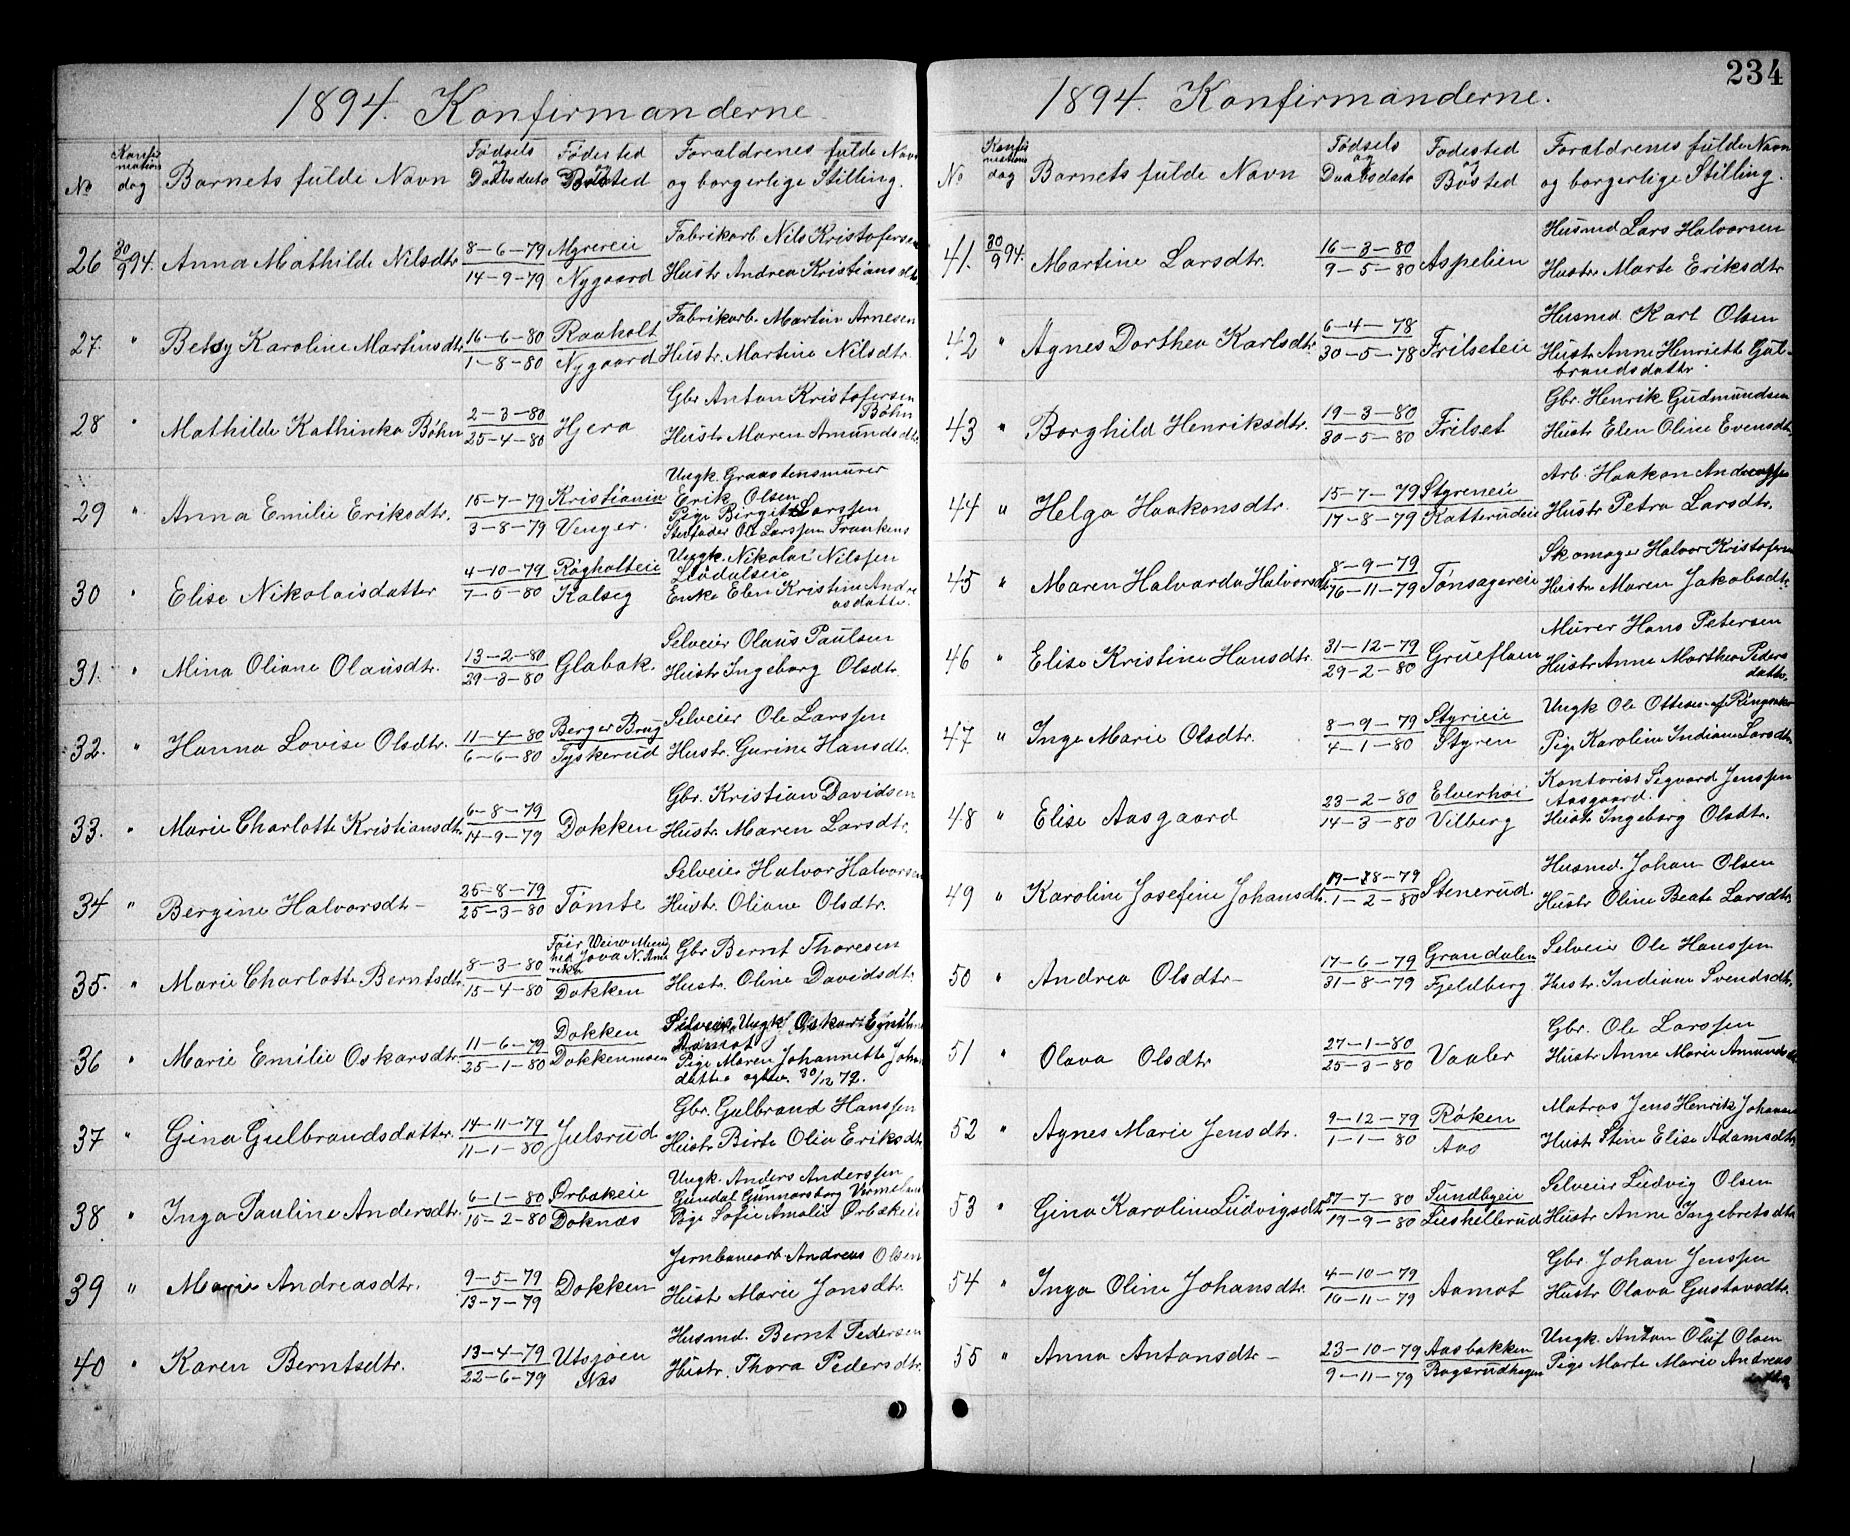 1894. Konfirmanderne
No
Konfirmations dag
Barnets fulde Navn
Fødsels og Daabsdato
Fødested og Bosted
Forældrenes fulde Navn og borgerlige Stilling.
26 30/9 94. Anna Mathilde Nilsdtr. 8-6-79 14-9-79 Myrereie Nygaard Fabrikarb. Nils Kristofersen Hustr. Andrea Kristiansdtr.
27. " Betsy Karoline Martinsdtr. 16-6-80 1-8-80 Raaholt Nygaard Fabrikarb. Martin Arnesen Hustr. Martine Nilsdtr.
28 " Mathilde Kathinka Bøhn 2-3-80 25-4-80 Hjera Gbr. Anton Kristofersen Bøhn Hustr. Maren Amundsdtr.
29 " Anna Emilie Eriksdtr. 15-7-79 3-8-79 Kristiania Venger. Ungk. Graastensmurer Erik Olsen Pige Birgitte Larssen Stedfader Ole Larssen
30 " Elise Nikolaisdatter 4-10-79 7-5-80 Røgholteie Kalseg Ungk. Nikolai Nilssen Enke Elen Kristine Andreasdatter.
31. " Mina Oliane Olausdtr. 13-2-80 29-3-80 Glabak. Selveier Olaus Paulsen Hustr. Ingeborg Olsdtr.
32. " Hanna Lovise Olsdtr. 11-4-80 6-6-80 Berger Brug Tyskerud Selveier Ole Larssen Hustr. Gurine Hansdtr.
33. " Marie Charlotte Kristiansdtr. 6-8-79 14-9-79 Dokken Gbr. Kristian Davidsen Hustr. Maren Larsdtr.
34 " Bergine Halvorsdtr- 25-8-79 25-3-80 Tømte Selveier Halvor Halvorsen Hustr. Oliane Olsdtr.
35. " Marie Charlotte Berntsdtr. 8-3-80 15-4-80 Jova N. Amerika Dokken Gbr Bernt Thoresen Hustr. Oline Davidsdtr.
36 " Marie Emilie Oskarsdtr. 11-6-79 25-1-80 Dokken Dokkenmoen Ungk. Oskar Pige Maren Johannette Johns datter 30/12 79.
37 " Gina Gulbrandsdatter. 14-11-79 11-1-80 Julsrud Gbr. Gulbrand Hanssen Hustr. Birte Olia Eriksdtr.
38 " Inga Pauline Andersdtr. 6-1-80 15-2-80 Ørbækeie Doknæs Ungk. Anders Anderssen Gundal Gunnarsborg Vermeland Pige Sofie Amalie Ørbækeie
39 " Marie Andreasdtr. 9-5-79 13-7-79 Dokken Jernbanearb. Andreas Olsen Hustr. Marie Jonsdtr.
40 " Karen Berntsdtr. 13-4-79 22-6-79 Utsjøen Næs Husmd. Bernt Pedersen Hustr. Thora Pedersdtr.
234
1894. Konfirmanderne.
No
Konfirmations dag
Barnets fulde Navn
Fødsels og Daabsdato
Fødested og Bosted
Forældrenes fulde Navn og borgerlige Stilling.
41. 30/9 94. Martine Larsdtr. 16-3-80 9-5-80 Aspelien Husmd Lars Halvorsen Hustr. Marte Eriksdtr
42 " Agnes Dorthea Karlsdtr. 6-4-78 30-5-78 Frilseteie Husmd. Karl Olsen Hustr Anne Henriette Gulbrandsdattr.
43 " Borghild Henriksdtr. 19-3-80 30-5-80 Frilset Gbr. Henrik Gudmundsen Hustr Elen Oline Evensdtr.
44 " Helga Haakonsdtr. 15-7-79 17-8-79 Styreneie Katterudeie Arb. Haakon Andreassen Hustr Petra Larsdtr.
45 " Maren Halvarda Halvorsdtr 8-9-79 16-11-79 Tønsagereie Skomager Halvor Kristofersen Hustr Maren Jakobsdtr.
46 " Elise Kristine Hansdtr. 31-12-79 29-2-80 Grueflaen Murer Hans Petersen Hustr Anne Marthea Peders datter.
47 " Inge Marie Olsdtr. 8-9-79 4-1-80 Styrieie Styren Ungk Ole Ottesen af Ringsaker Pige Karoline Indiane Larsdtr.
48 " Elise Aasgaard 23-2-80 14-3-80 Elverhøi Vilberg Kontorist Segvard Jenssen Aasgaard. Hustr Ingeborg Olsdtr.
49 " Karoline Josefine Johansdtr. 19-8-79 1-2-80 Stenerud. Husmd. Johan Olsen Hustr Oline Beate Larsdtr.
50 " Andrea Olsdtr- 17-6-79 31-8-79 Grandalen Fjeldberg Selveier Ole Hanssen Hustr. Indiane Svendsdtr.
51 " Olava Olsdtr 27-1-80 25-3-80 Vaaler Gbr. Ole Larssen Hustr Anne Marie Amundsdtr
52 " Agnes Marie Jensdtr. 9-12-79 1-1-80 Røken Aas Matros Jens Henrik Johansen Hustr Stine Elise Adamsdtr.
53 " Gina Karoline Ludvigsdtr. 27-7-80 19-9-80 Sundbyeie Lieshellerud Selveier Ludvig Olsen Hustr Anne Ingebretsdtr
54 " Inga Oline Johansdtr. 4-10-79 16-11-79 Aamot Gbr Johan Jenssen Hustr Olava Gustavsdtr.
55 " Anna Antonsdtr- 23-10-79 9-11-79 Aasbakken Bogsrudhagen Ungk. Anton Oluf Olsen Pige Marte Marie Andreas datter